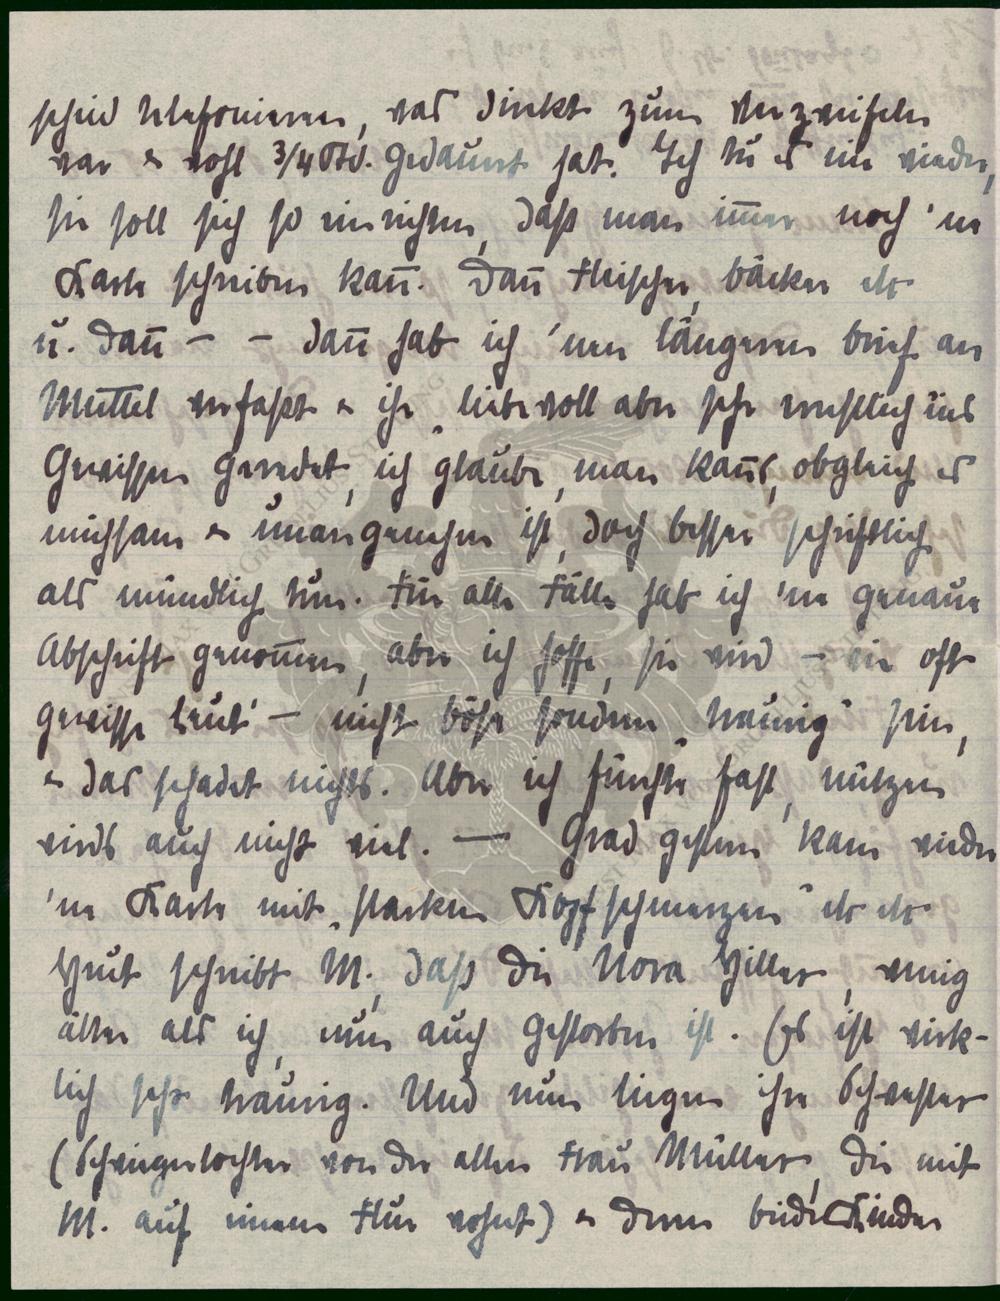 scheid telefonieren, was direkt zum Verzweifeln
war & wohl 3/4 Std. gedauert hat. Ich tu es nie wieder,
sie soll sich so einrichten, daß man im̄er noch 'ne
Karte schreiben kan̄. Dan̄ Fleischer, Bäcker etc
u. dan̄ – – dan̄ hab ich 'nen längeren Brief an
Muttel verfaßt & ihr liebevoll aber sehr ernstlich ins
Gewissen geredet, ich glaube, man kan̄s, obgleich es
mühsam & unangenehm ist, doch besser schriftlich
als mündlich tun. Für alle Fälle hab ich 'ne genaue
Abschrift genom̄en, aber ich hoffe, sie wird – wie oft
gewisse Leut' – nicht böse sondern „traurig" sein,
& das schadet nichts. Aber ich fürchte fast, nützen
wirds auch nicht viel. — Grad gestern kam wieder
'ne Karte mit „starken Kopfschmerzen" etc etc
Heut schreibt M., daß die Nora Hiller, wenig
älter als ich, nun auch gestorben ist. Es ist wirk-
lich sehr traurig. Und nun liegen ihre Schwester
(Schwiegertochter von der alten Frau Müller, die mit
M. auf einem Flur wohnt) & deren beide Kinder